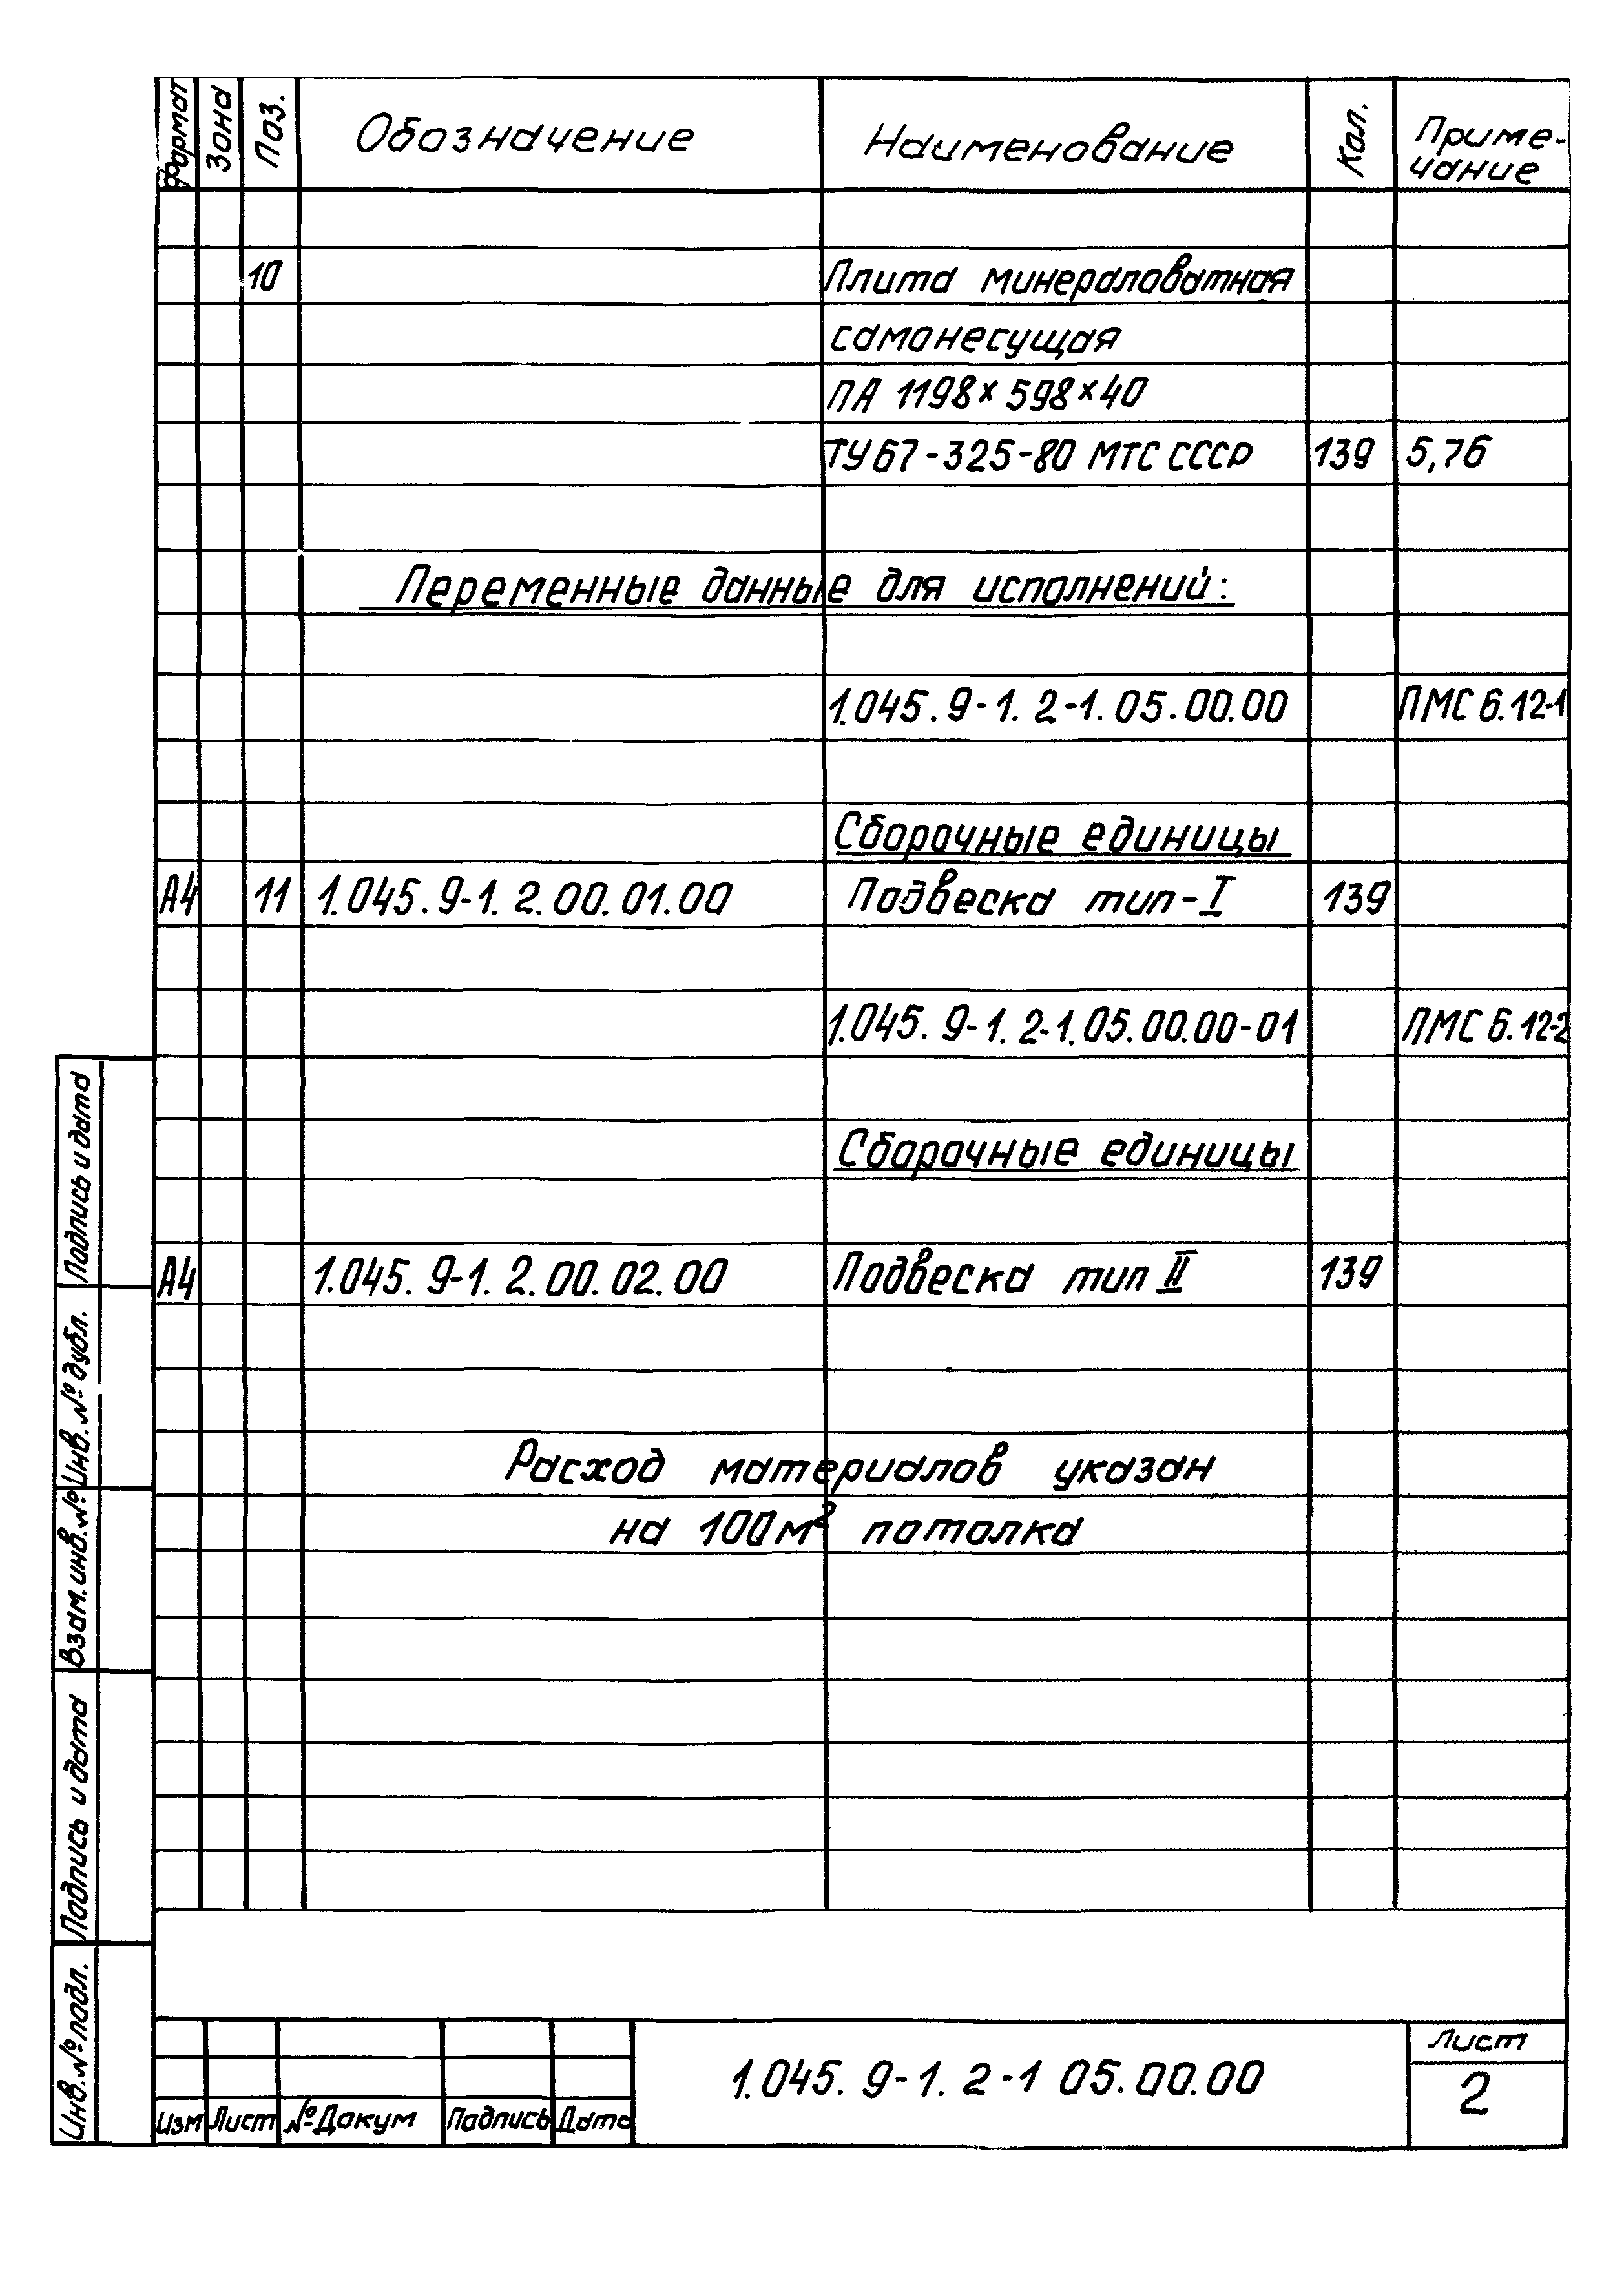 Формат Зона Поз. Обозначение Наименование Кол. Приме-
чание
10 Плита минераловатная
самонесущая
ПА 1198×598×40
ТУ67-325-80 МТС СССР 139 5,76
Переменные данные для исполнений:
1.045.9-1.2-1.05.00.00 ПМС 6.12-1
Сборочные единицы
А4 11 1.045.9-1.2.00.01.00 Подвеска тип-I 139
1.045.9-1.2-1.05.00.00-01 ПМС 6.12-2
Сборочные единицы
А4 1.045.9-1.2.00.02.00 Подвеска тип II 139
Расход материалов указан
на 100м² потолка
Подпись и дата
Инв. № дубл.
Взам. инв. №
Подпись и дата
Инв. № подл.
Изм Лист № Докум Подпись Дата
1.045.9-1.2-1 05.00.00
Лист
2